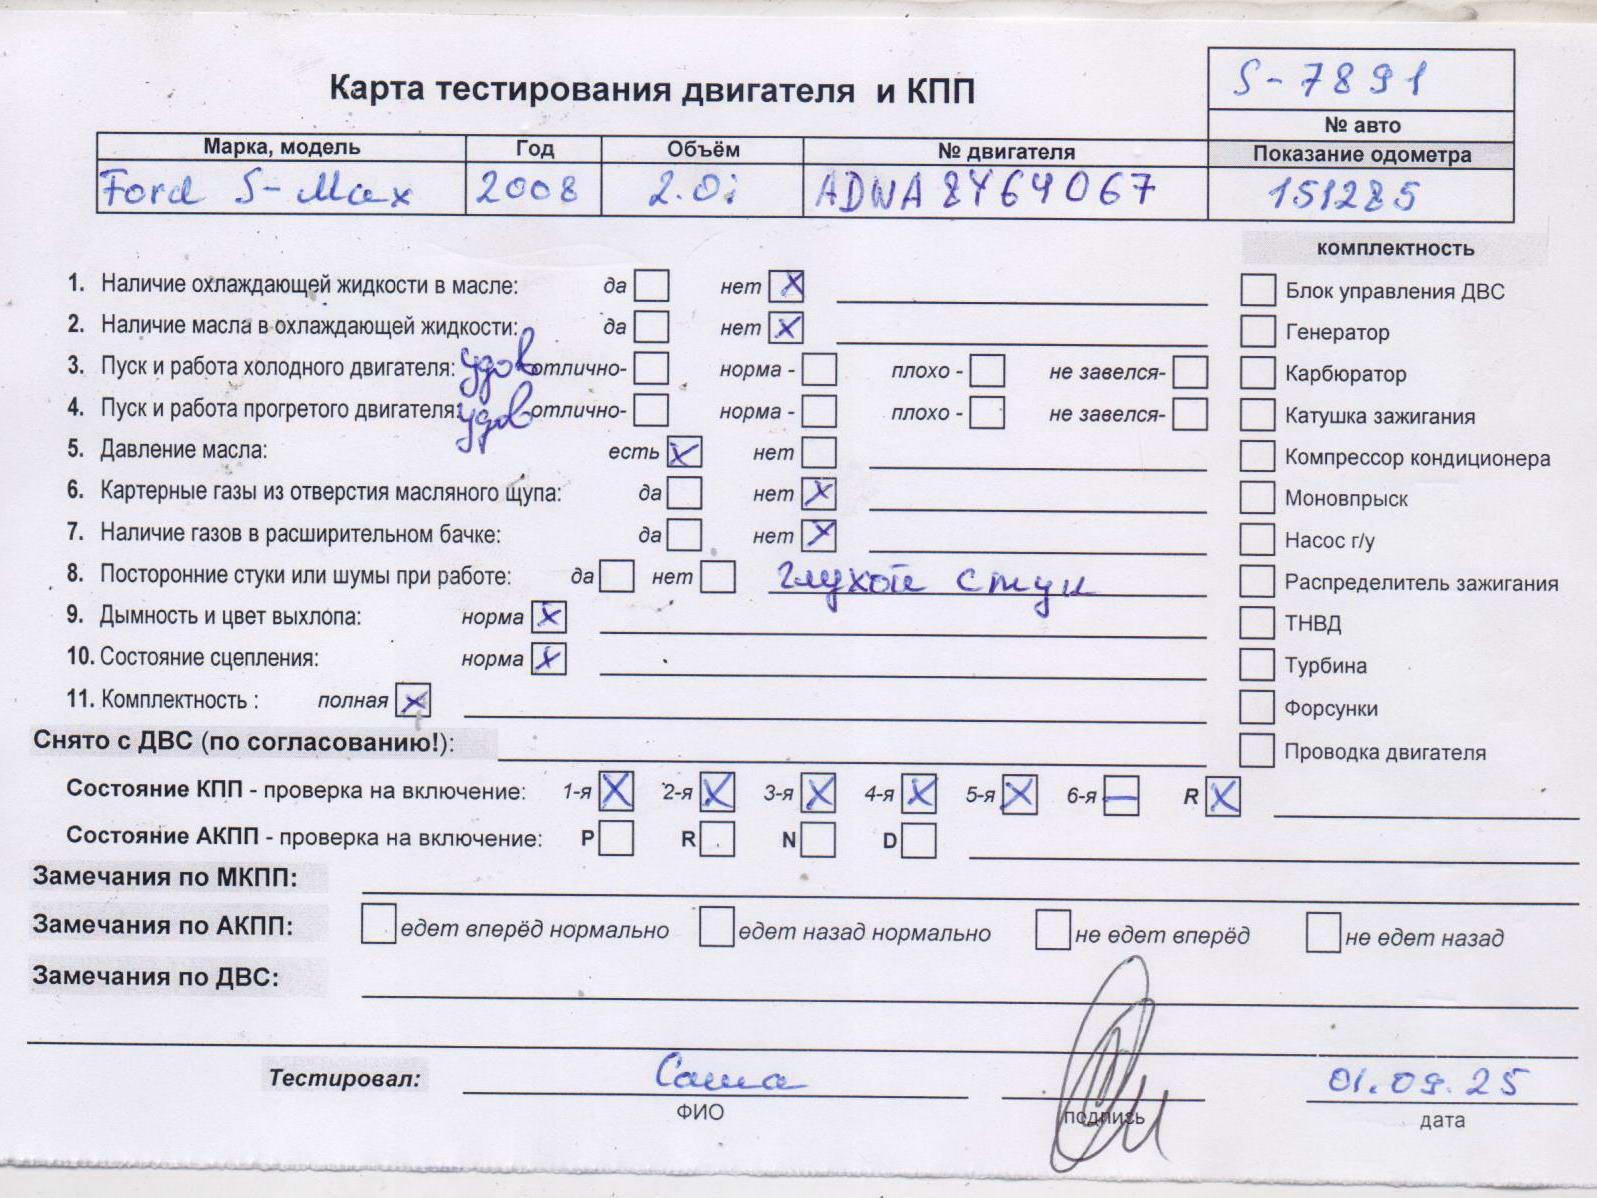 S-7891
Карта тестирования двигателя и КПП
№ авто
Марка, модель Год Объём № двигателя Показание одометра
Ford S-Max 2008 2.0i ADWA 8Y64067 151285
комплектность
1. Наличие охлаждающей жидкости в масле: да нет X
Блок управления ДВС
2. Наличие масла в охлаждающей жидкости: да нет X
Генератор
3. Пуск и работа холодного двигателя: удов отлично- норма - плохо - не завелся-
Карбюратор
4. Пуск и работа прогретого двигателя: удов отлично- норма - плохо - не завелся-
Катушка зажигания
5. Давление масла: есть X нет
Компрессор кондиционера
6. Картерные газы из отверстия масляного щупа: да нет X
Моновпрыск
7. Наличие газов в расширительном бачке: да нет X
Насос г/у
8. Посторонние стуки или шумы при работе: да нет глухой стук
Распределитель зажигания
9. Дымность и цвет выхлопа: норма X
ТНВД
10. Состояние сцепления: норма X
Турбина
11. Комплектность : полная X
Форсунки
Снято с ДВС (по согласованию!):
Проводка двигателя
Состояние КПП - проверка на включение: 1-я X 2-я X 3-я X 4-я X 5-я X 6-я — R X
Состояние АКПП - проверка на включение: P R N D
Замечания по МКПП:
Замечания по АКПП: едет вперёд нормально едет назад нормально не едет вперёд не едет назад
Замечания по ДВС:
Тестировал: Саша 01.09.25
ФИО подпись дата